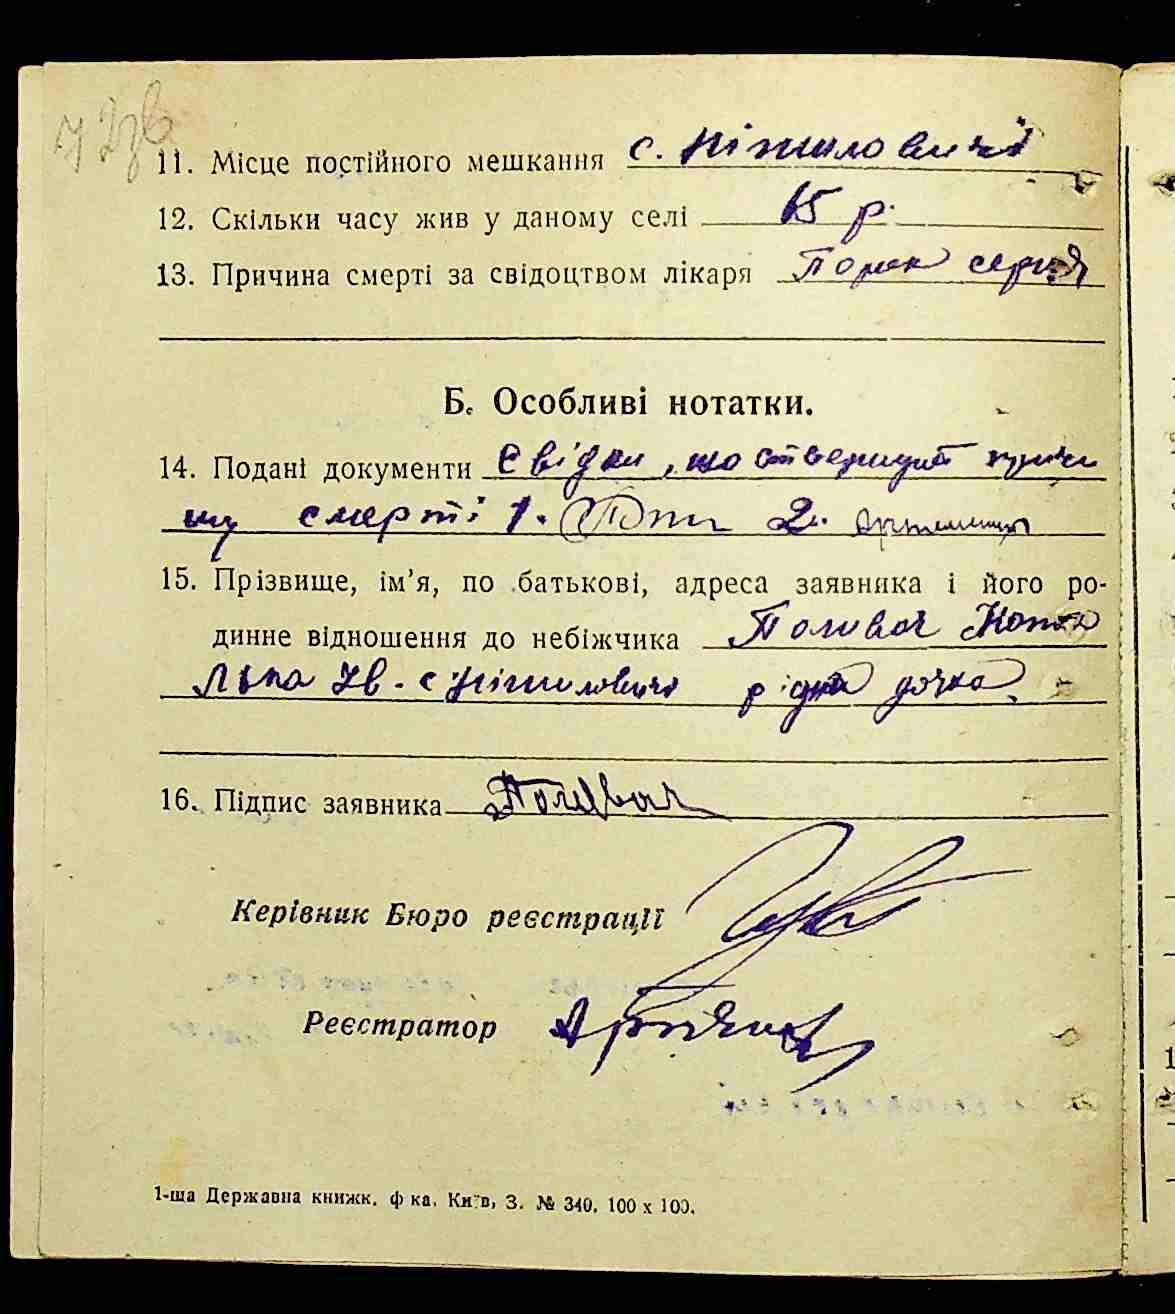 11. Місце постійного мешкання с. Ніжиловичі
12. Скільки часу жив у даному селі 65 р.
13. Причина смерті за свідоцтвом лікаря Порок серця
Б. Особливі нотатки.
14. Подані документи Свідки, що ствержують причи
ну смерті 1. 2.
15. Прізвище, ім'я, по батькові, адреса заявника і його ро-
динне відношення до небіжчика
Ів. с Ніжиловичі рідна дочка.
16. Підпис заявника
Керівник Бюро реєстрації
Реєстратор
1-ша Державна книжк. ф ка. Київ, З. № 340. 100 х 100.